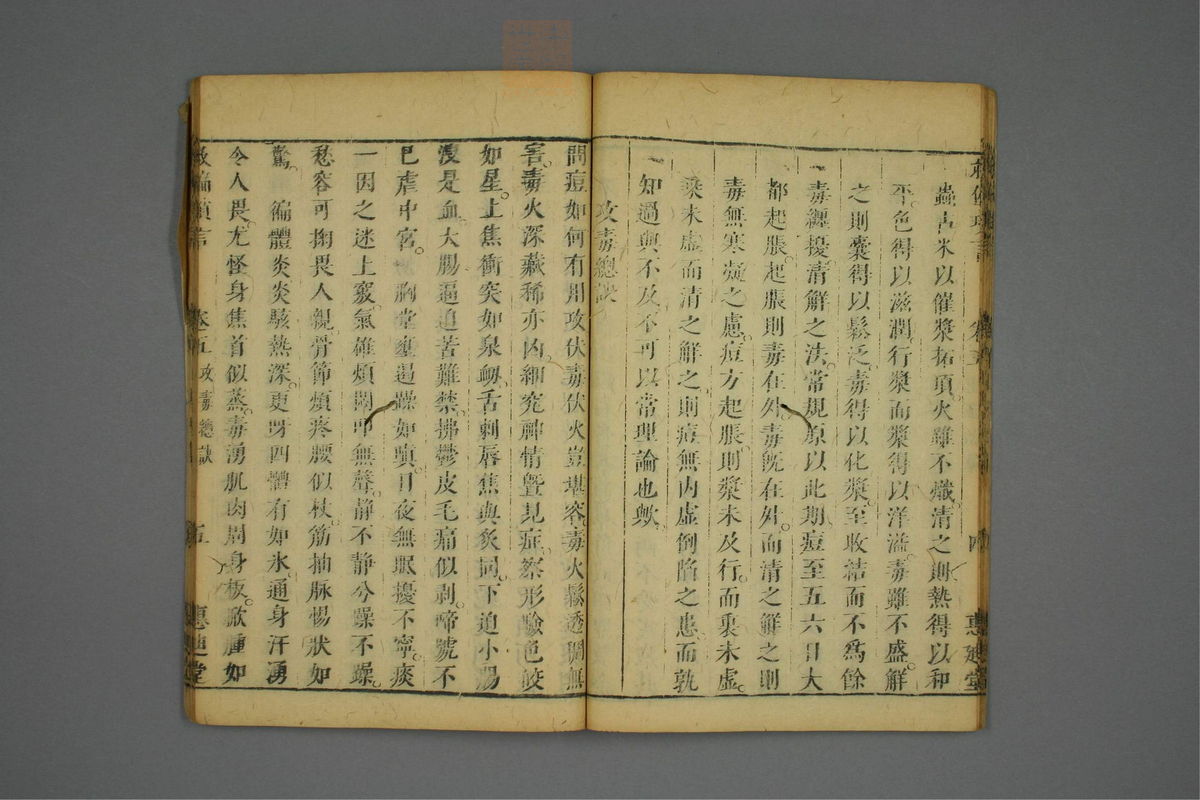 蟲古米以催漿拓頂火雖不熾清之則熱得以和
平色得以滋潤行漿而漿得以洋溢毒雖不盛解
之則囊得以鬆泛毒得以化漿至收結而不爲餘
一毒纏擾清解之法常規原以此期痘至五六日大
都起脹起脹則毒在外毒旣在外而清之解之則
毒無寒凝之慮痘方起脹則漿未及行而裏未虛
乘未虛而清之解之則痘無內虛倒陷之患而孰
一知過與不及不可以常理論也歟
攻毒總訣
問痘如何有用攻伏毒伏火豈堪容毒火鬆透稠無
害毒火深藏稀亦凶細究神情曁見症察形驗色皎
如星上焦衝突如泉衂舌剌唇焦與炙同下迫小腸
溲是血大腸逼迫苦難禁拂鬱皮毛痛似剥啼號不
已虐中宮胸堂壅遏躁如眞日夜無眠擾不寧痰
一因之迷上竅氣雄煩悶叫無聲靜不靜兮躁不躁
愁容可掬畏人親骨節煩疼腰似杖筋抽脉惕狀如
驚徧體炎炎駭熱深更呀四體有如氷通身汗湧
令人畏尤怪身焦首似蒸毒湧肌肉周身板歘腫如
卷五 攻毒總訣 五 惠迪堂